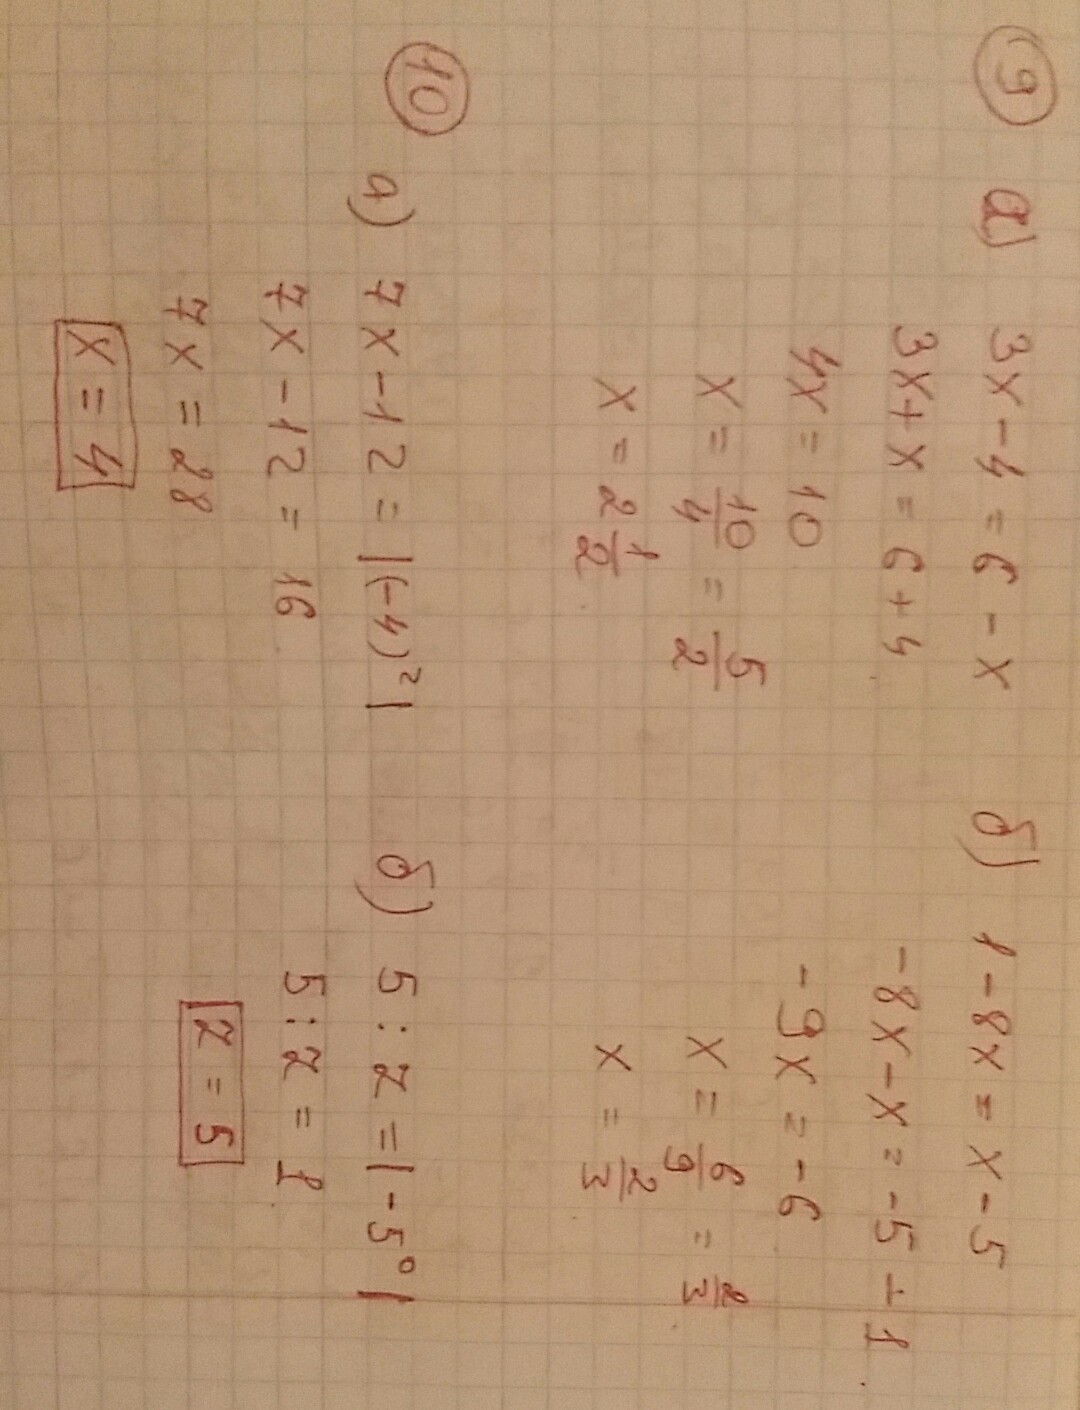 9 а) 3x - 4 = 6 - x
3x + x = 6 + 4
4x = 10
x = 10/4 = 5/2
x = 2 1/2
б) 1 - 8x = x - 5
-8x - x = -5 - 1
-9x = -6
x = 6/9 = 2/3
x = 2/3
10 а) 7x - 12 = |(-4)²|
7x - 12 = 16
7x = 28
x = 4
б) 5 : z = |-5⁰|
5 : z = 1
z = 5